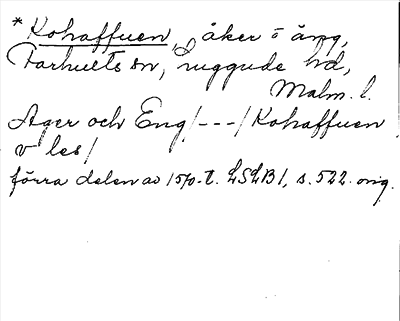 * Kohaffuen, åker o äng,
Farhults sn, Luggude hd,
Malm. l.
Ager och Eng /---/ Kohaffuen
v les /
förra delen av 1570-t. LSLB 1, s. 522. orig.